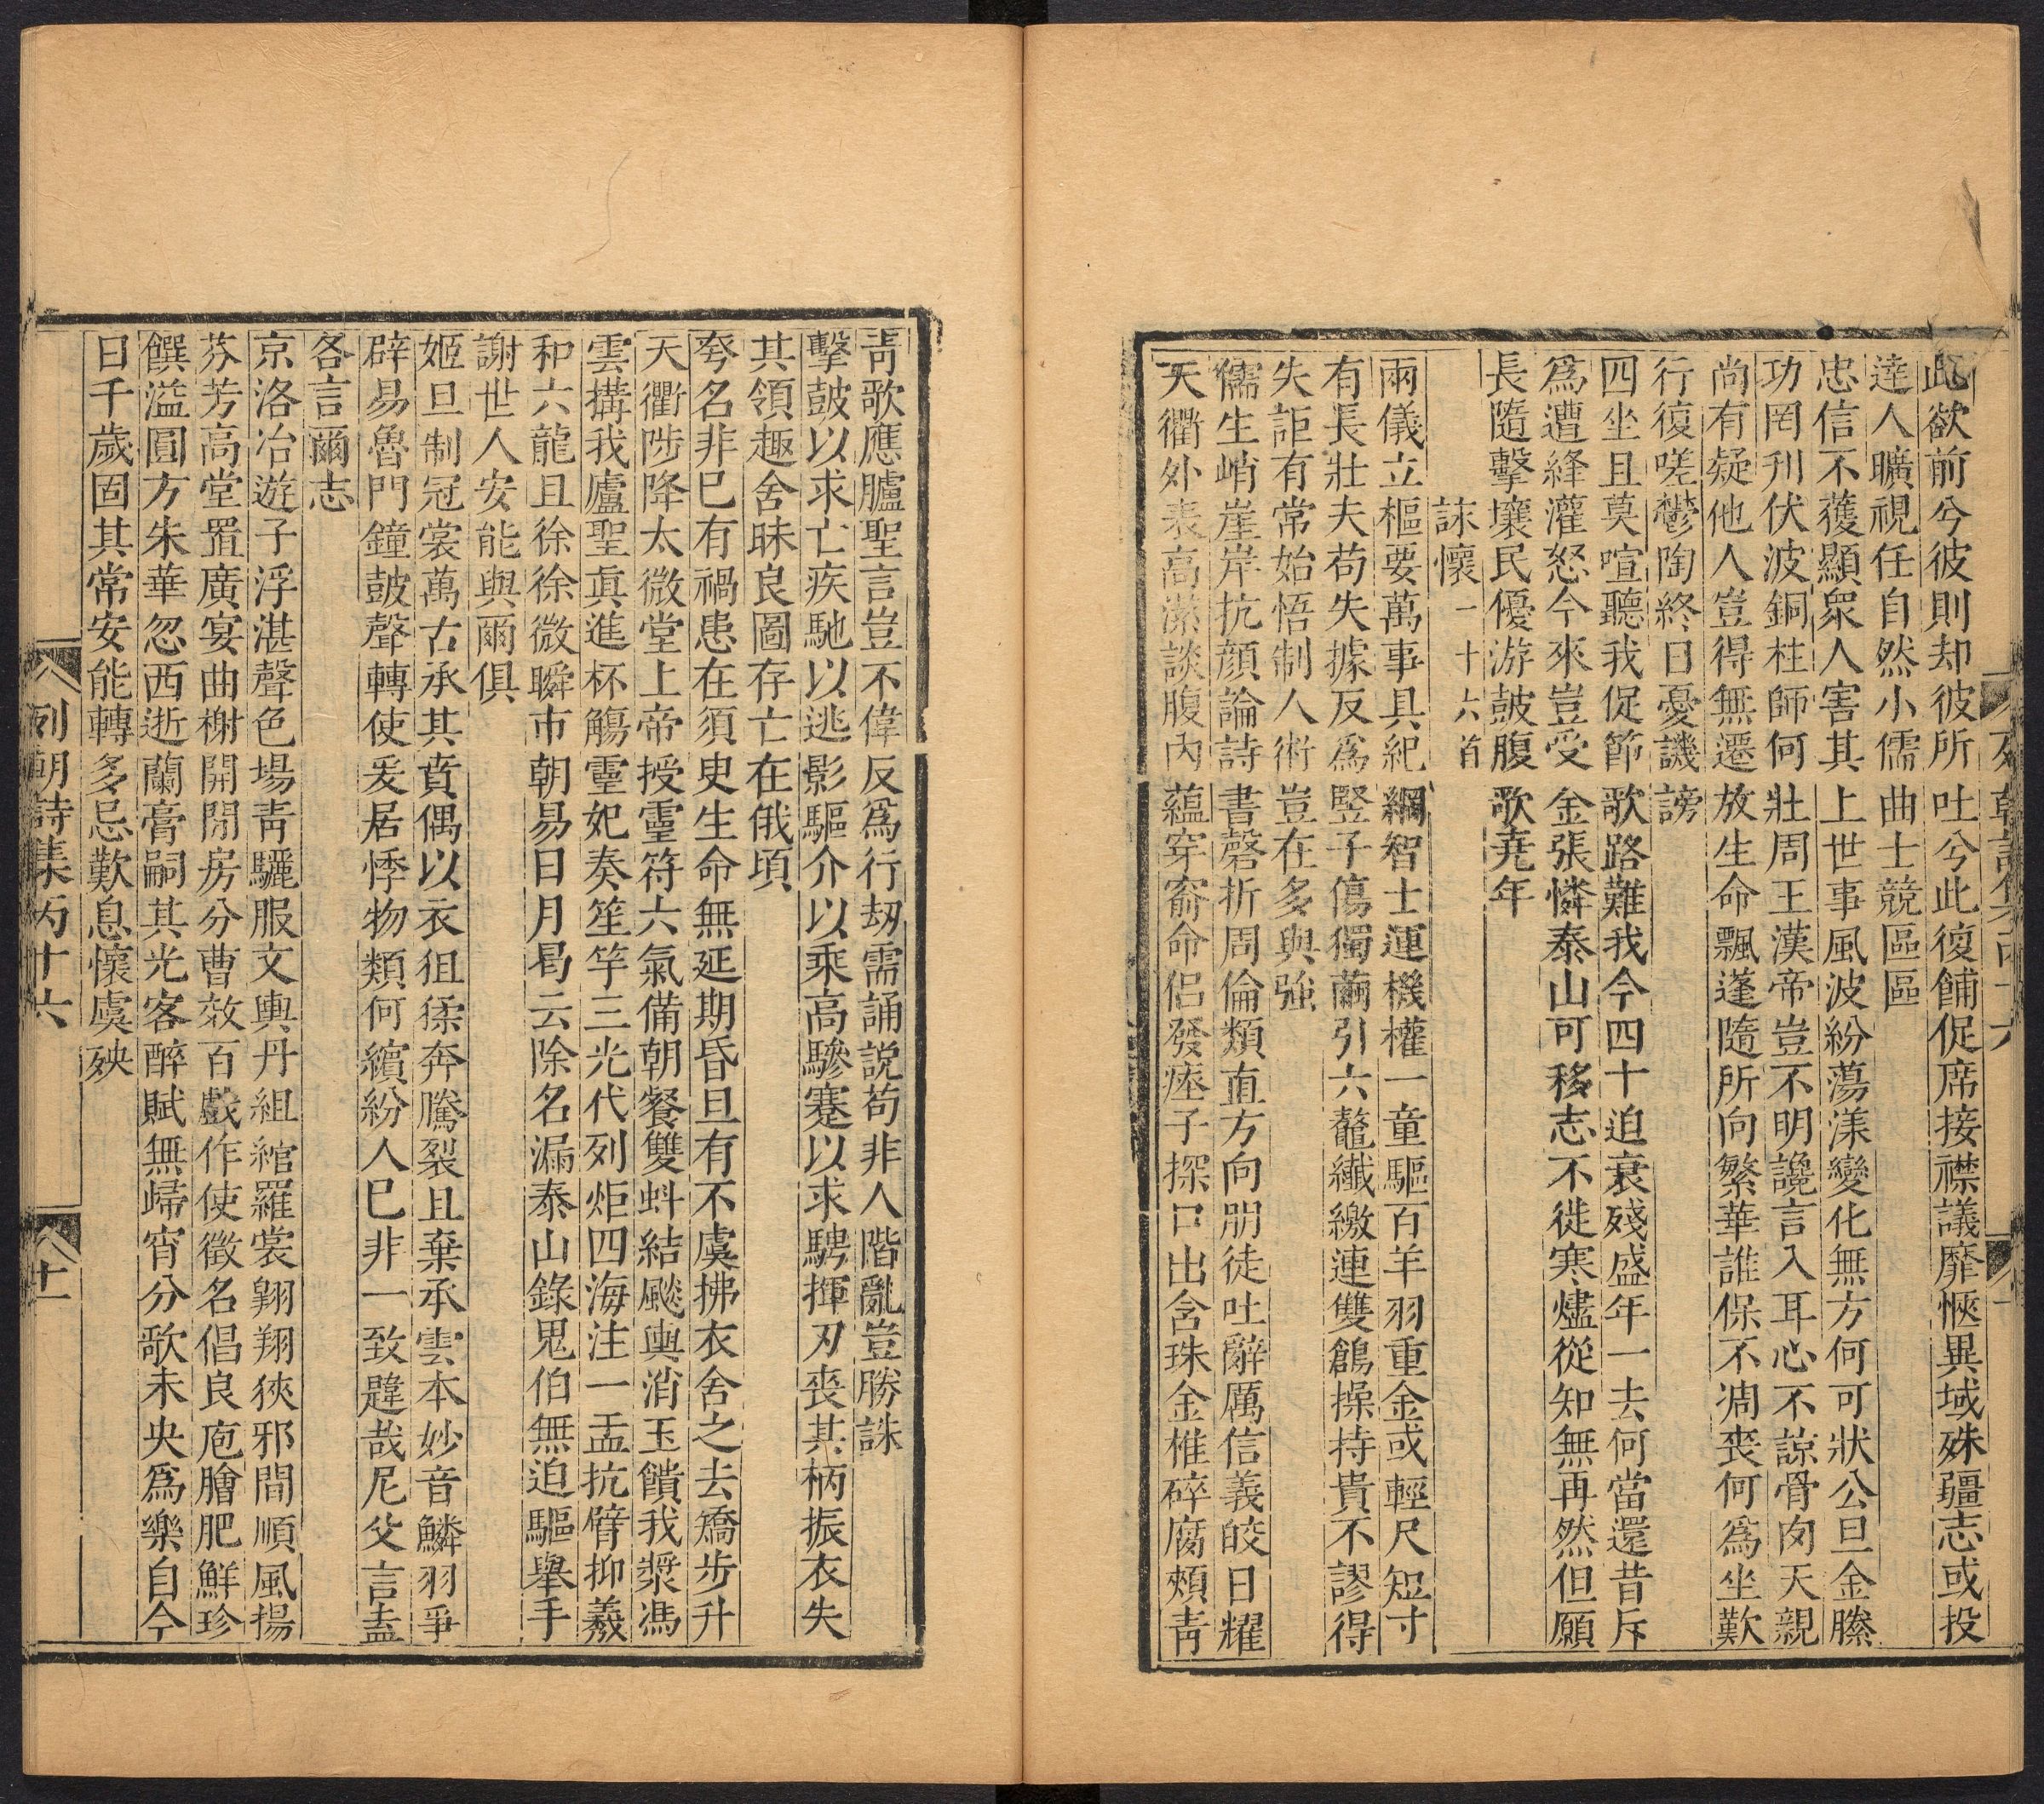 此欲前兮彼則却彼所吐兮此復餔促席接襟議靡愜異域殊疆志或投
達人曠視任自然小儒曲士競區區
忠信不獲顯衆人害其上世事風波紛蕩漾變化無方何可狀公旦金縢
功罔刋伏波銅柱師何壯周王漢帝豈不明讒言入耳心不諒骨肉天親
尚有疑他人豈得無遷放生命飄蓬隨所向繁華誰保不凋喪何爲坐歎
行復嗟鬱陶終日憂譏謗
四坐且莫喧聽我促節歌路難我今四十迫衰殘盛年一去何當還昔斥
爲遭絳灌怒今來豈受金張憐泰山可移志不徙寒燼從知無再然但願
長隨擊壤民優游鼓腹歌堯年
詠懷一十六首
兩儀立樞要萬事具紀綱智士運機權一童驅百羊羽重金或輕尺短寸
有長壯夫苟失據反爲竪子傷獨繭引六鼇纖繳連雙鶬操持貴不謬得
失詎有常始悟制人術豈在多與強
儒生峭崖岸抗顔論詩書磬折周倫類直方向朋徒吐辭厲信義皎日耀
天衢外表高潔談腹內蘊穿窬命侣發瘞子探口出含珠金椎碎腐頰靑
靑歌應臚聖言豈不偉反爲行刼需誦説苟非人階亂豈勝誅
擊鼓以求亡疾馳以逃影驅介以乘高驂蹇以求騁揮刃喪其柄振衣失
其領趣舍昧良圖存亡在俄頃
夸名非已有禍患在須臾生命無延期昏旦有不虞拂衣舍之去矯步升
天衢陟降太微堂上帝授靈符六氣備朝餐雙虯結飈輿消玉饋我漿馮
雲搆我廬聖眞進杯觴靈妃奏笙竽三光代列炬四海注一盂抗臂抑羲
和六龍且徐徐微瞬市朝易日月曷云除名漏泰山錄鬼伯無迫驅舉手
謝世人安能與爾俱
姬旦制冠裳萬古承其賁偶以衣徂猱奔騰裂且棄承雲本妙音鱗羽爭
辟易魯門鐘鼓聲轉使爰居悸物類何繽紛人已非一致韙哉尼父言盍
各言爾志
京洛冶遊子浮湛聲色場靑驪服文輿丹組綰羅裳翺翔狹邪間順風揚
芬芳高堂置廣宴曲榭開閒房分曹效百戲作使徵名倡良庖膾肥鮮珍
饌溢圓方朱華忽西逝蘭膏嗣其光客醉賦無歸宵分歌未央爲樂自今
日千歲固其常安能轉多忌歎息懷虞殃
列朝詩集丙十六
十一